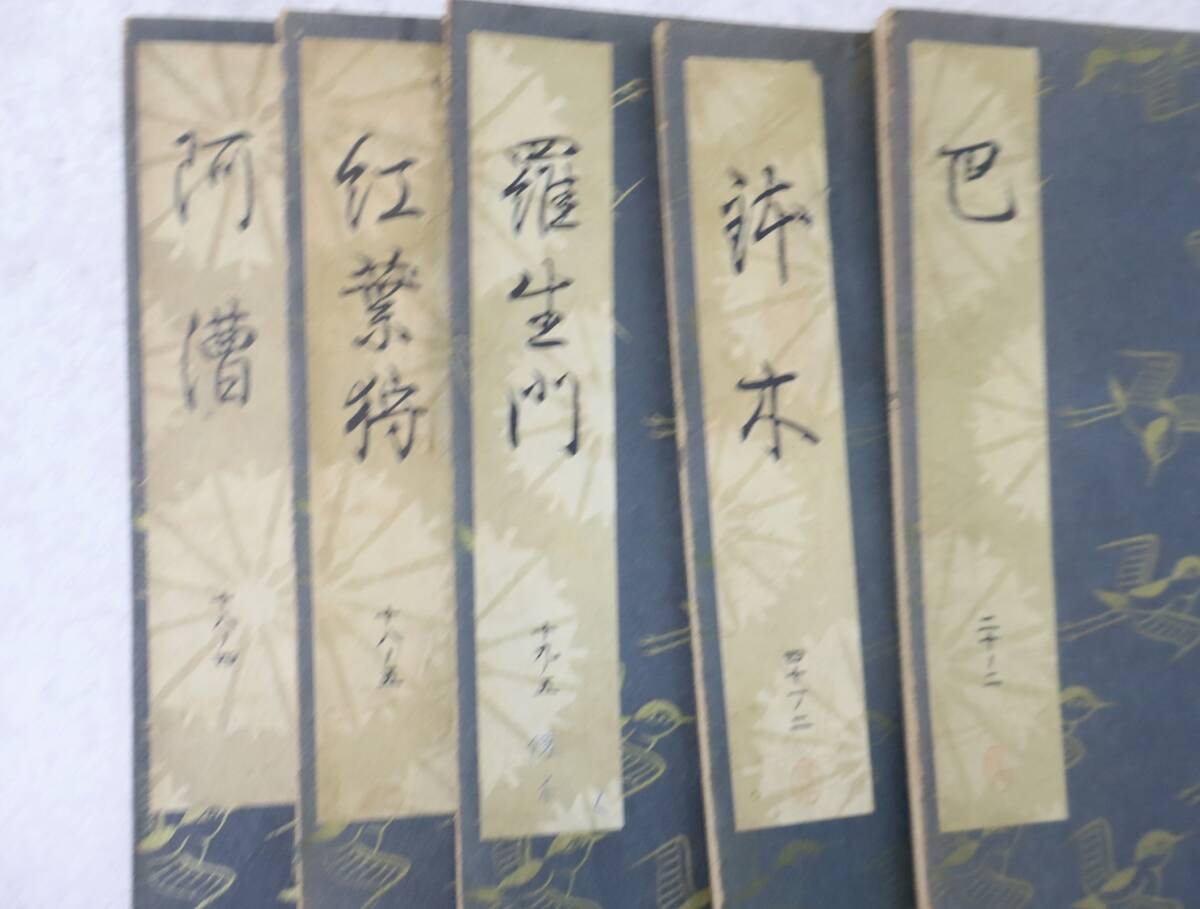 巴
二十ノ二
鉢木
四十ノ二
羅生門
十九ノ五
紅葉狩
十八ノ五
阿漕
十八ノ四